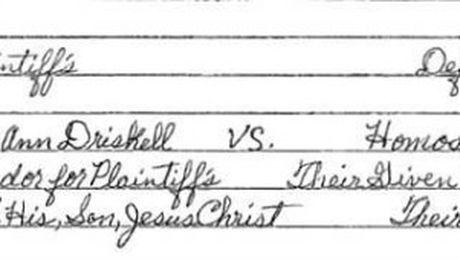 ntiff's De
Ann Driskell VS. Homos
dor for Plaintiff's Their Given
His, Son, Jesus Christ Their